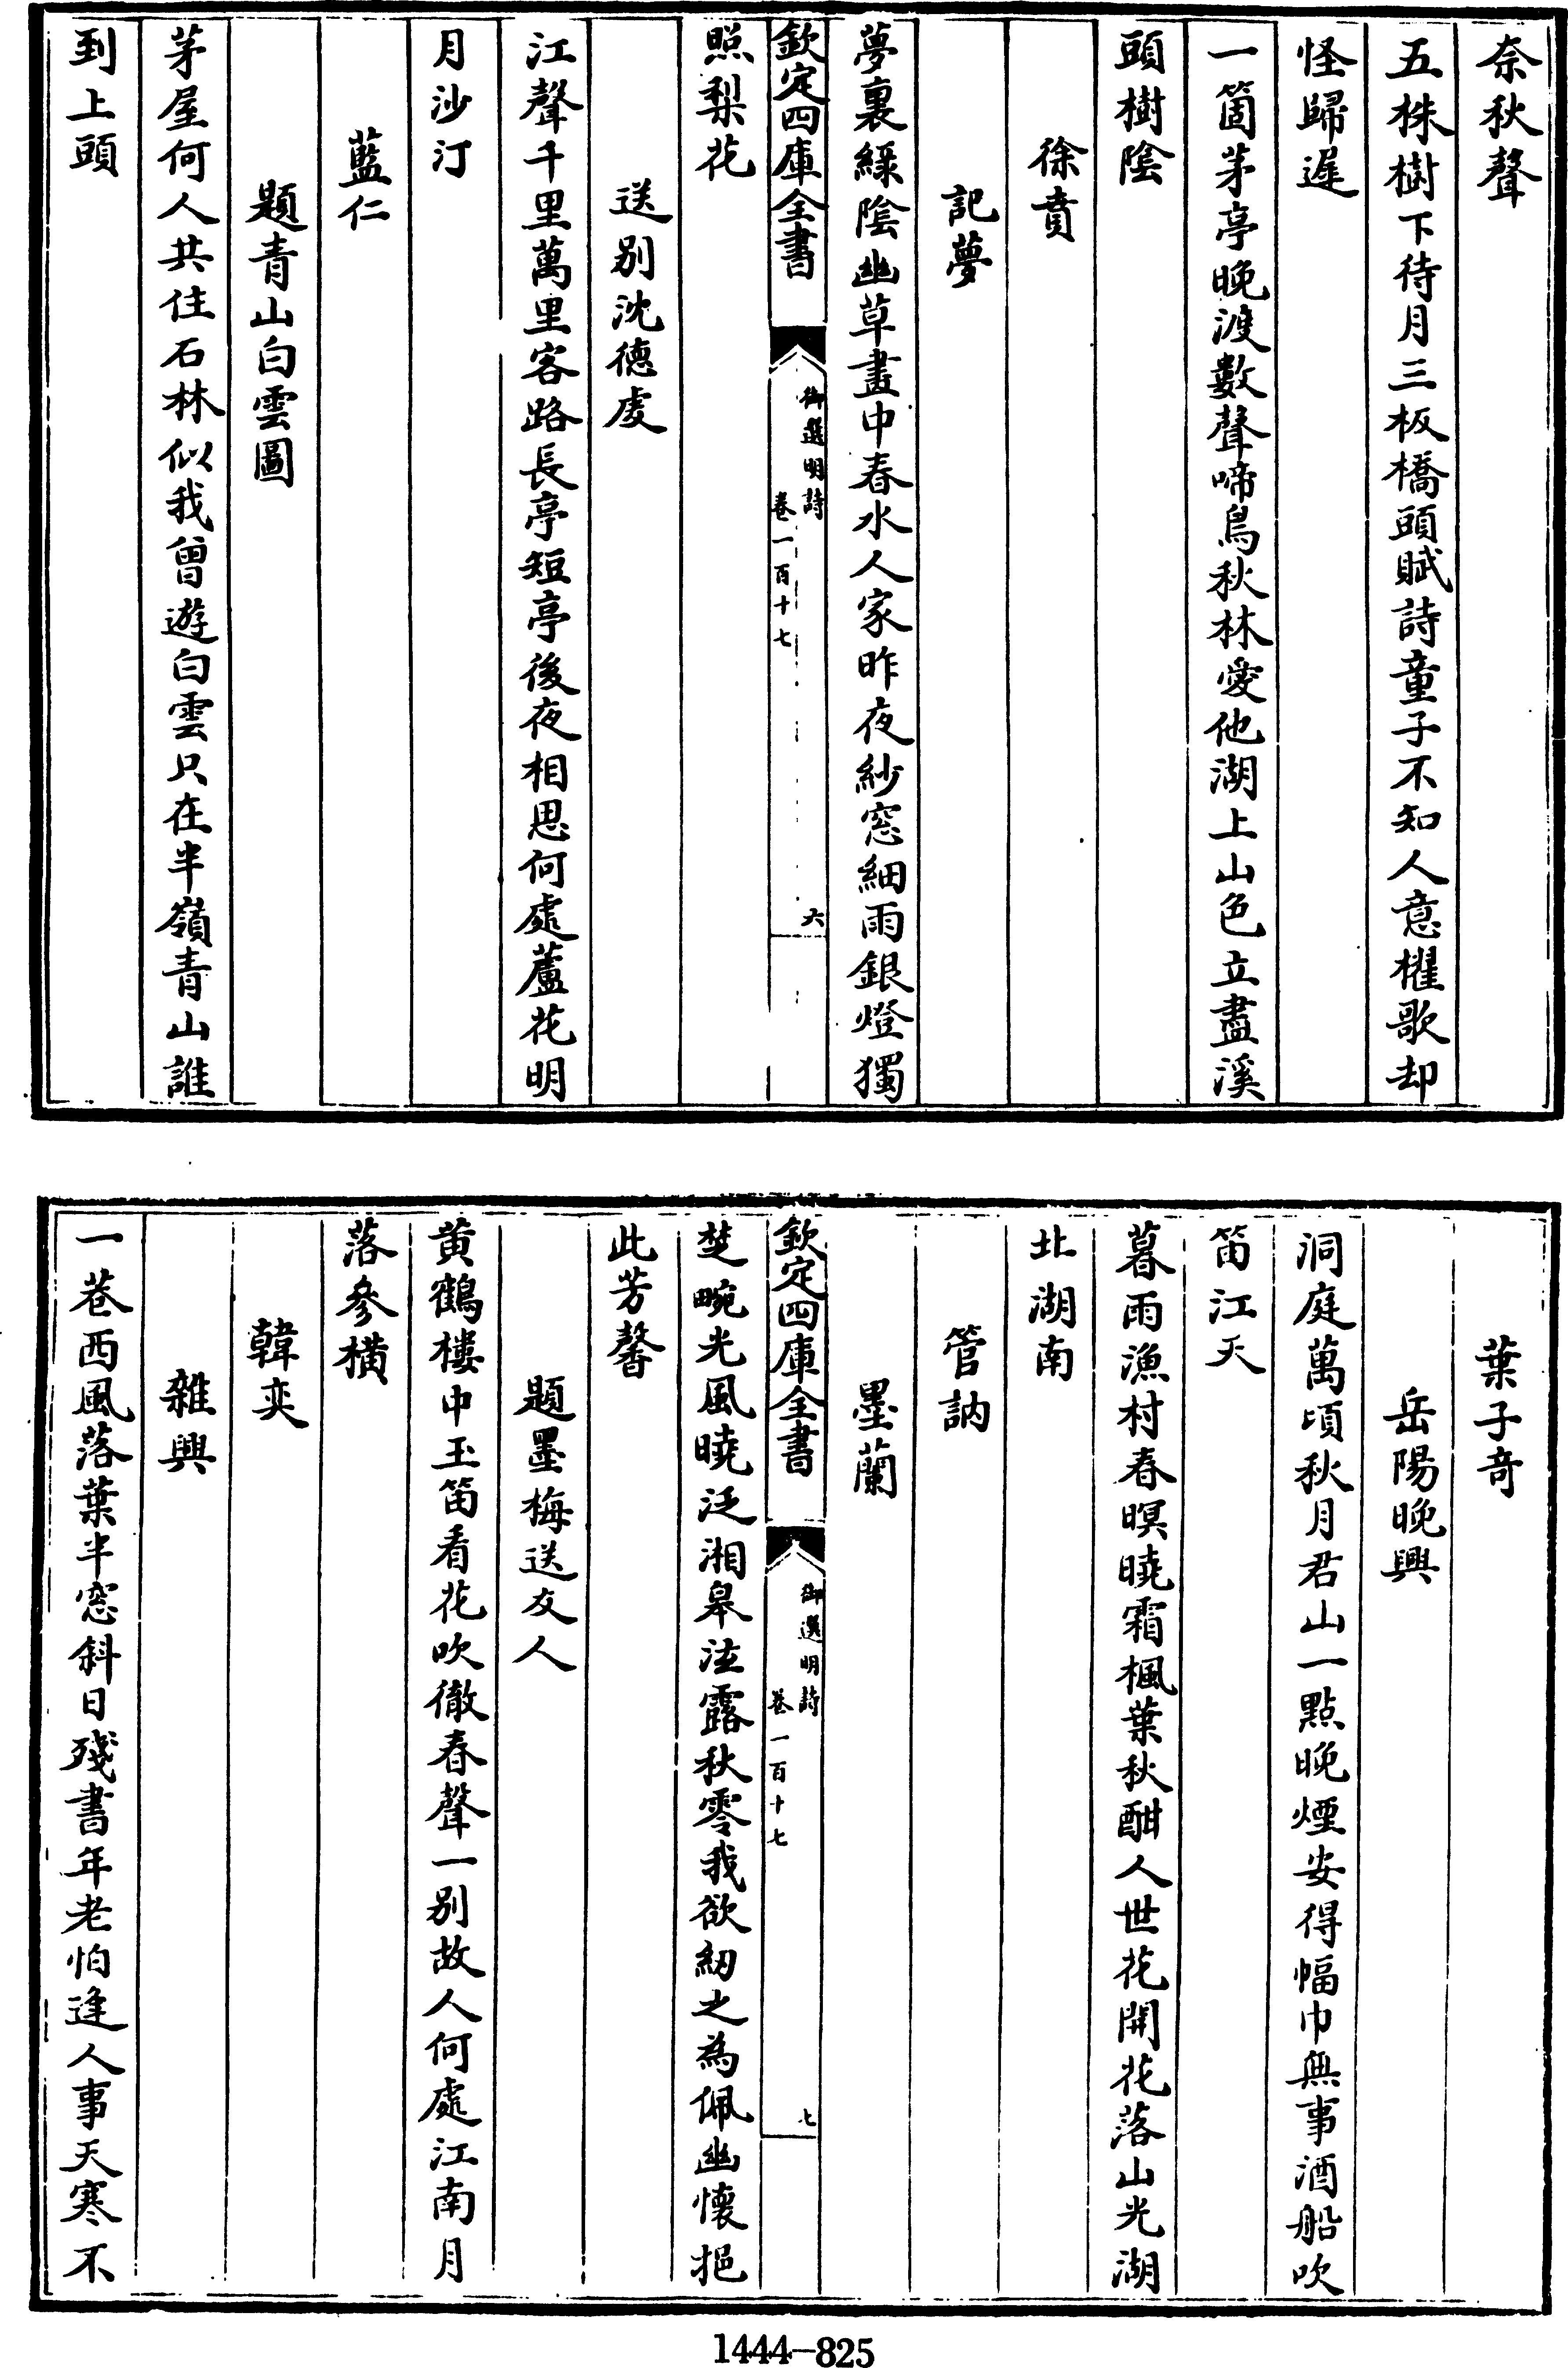 奈秋聲
五株樹下待月三板橋頭賦詩童子不知人意櫂歌却
怪歸遲
一箇茅亭晚渡數聲啼鳥秋林愛他湖上山色立盡溪
頭樹陰
徐賁
記夢
夢裏綠陰幽草畫中春水人家昨夜紗窓細雨銀燈獨
欽定四庫全書
御選明詩
卷一百十七
六
照梨花
送别沈徳䖍
江聲千里萬里客路長亭短亭後夜相思何處蘆花明
月沙汀
藍仁
題青山白雲圖
茅屋何人共住石林似我曾遊白雲只在半嶺青山誰
到上頭
葉子竒
岳陽晚興
洞庭萬頃秋月君山一點晚煙安得幅巾無事酒船吹
笛江天
暮雨漁村春暝曉霜楓葉秋酣人世花開花落山光湖
北湖南
管訥
墨蘭
欽定四庫全書
御選明詩
卷一百十七
七
楚畹光風曉泛湘皋泫露秋零我欲紉之為佩幽懷挹
此芳馨
題墨梅送友人
黄鶴樓中玉笛看花吹徹春聲一别故人何處江南月
落參橫
韓奕
雜興
一巷西風落葉半窓斜日殘書年老怕逢人事天寒不
1444-825